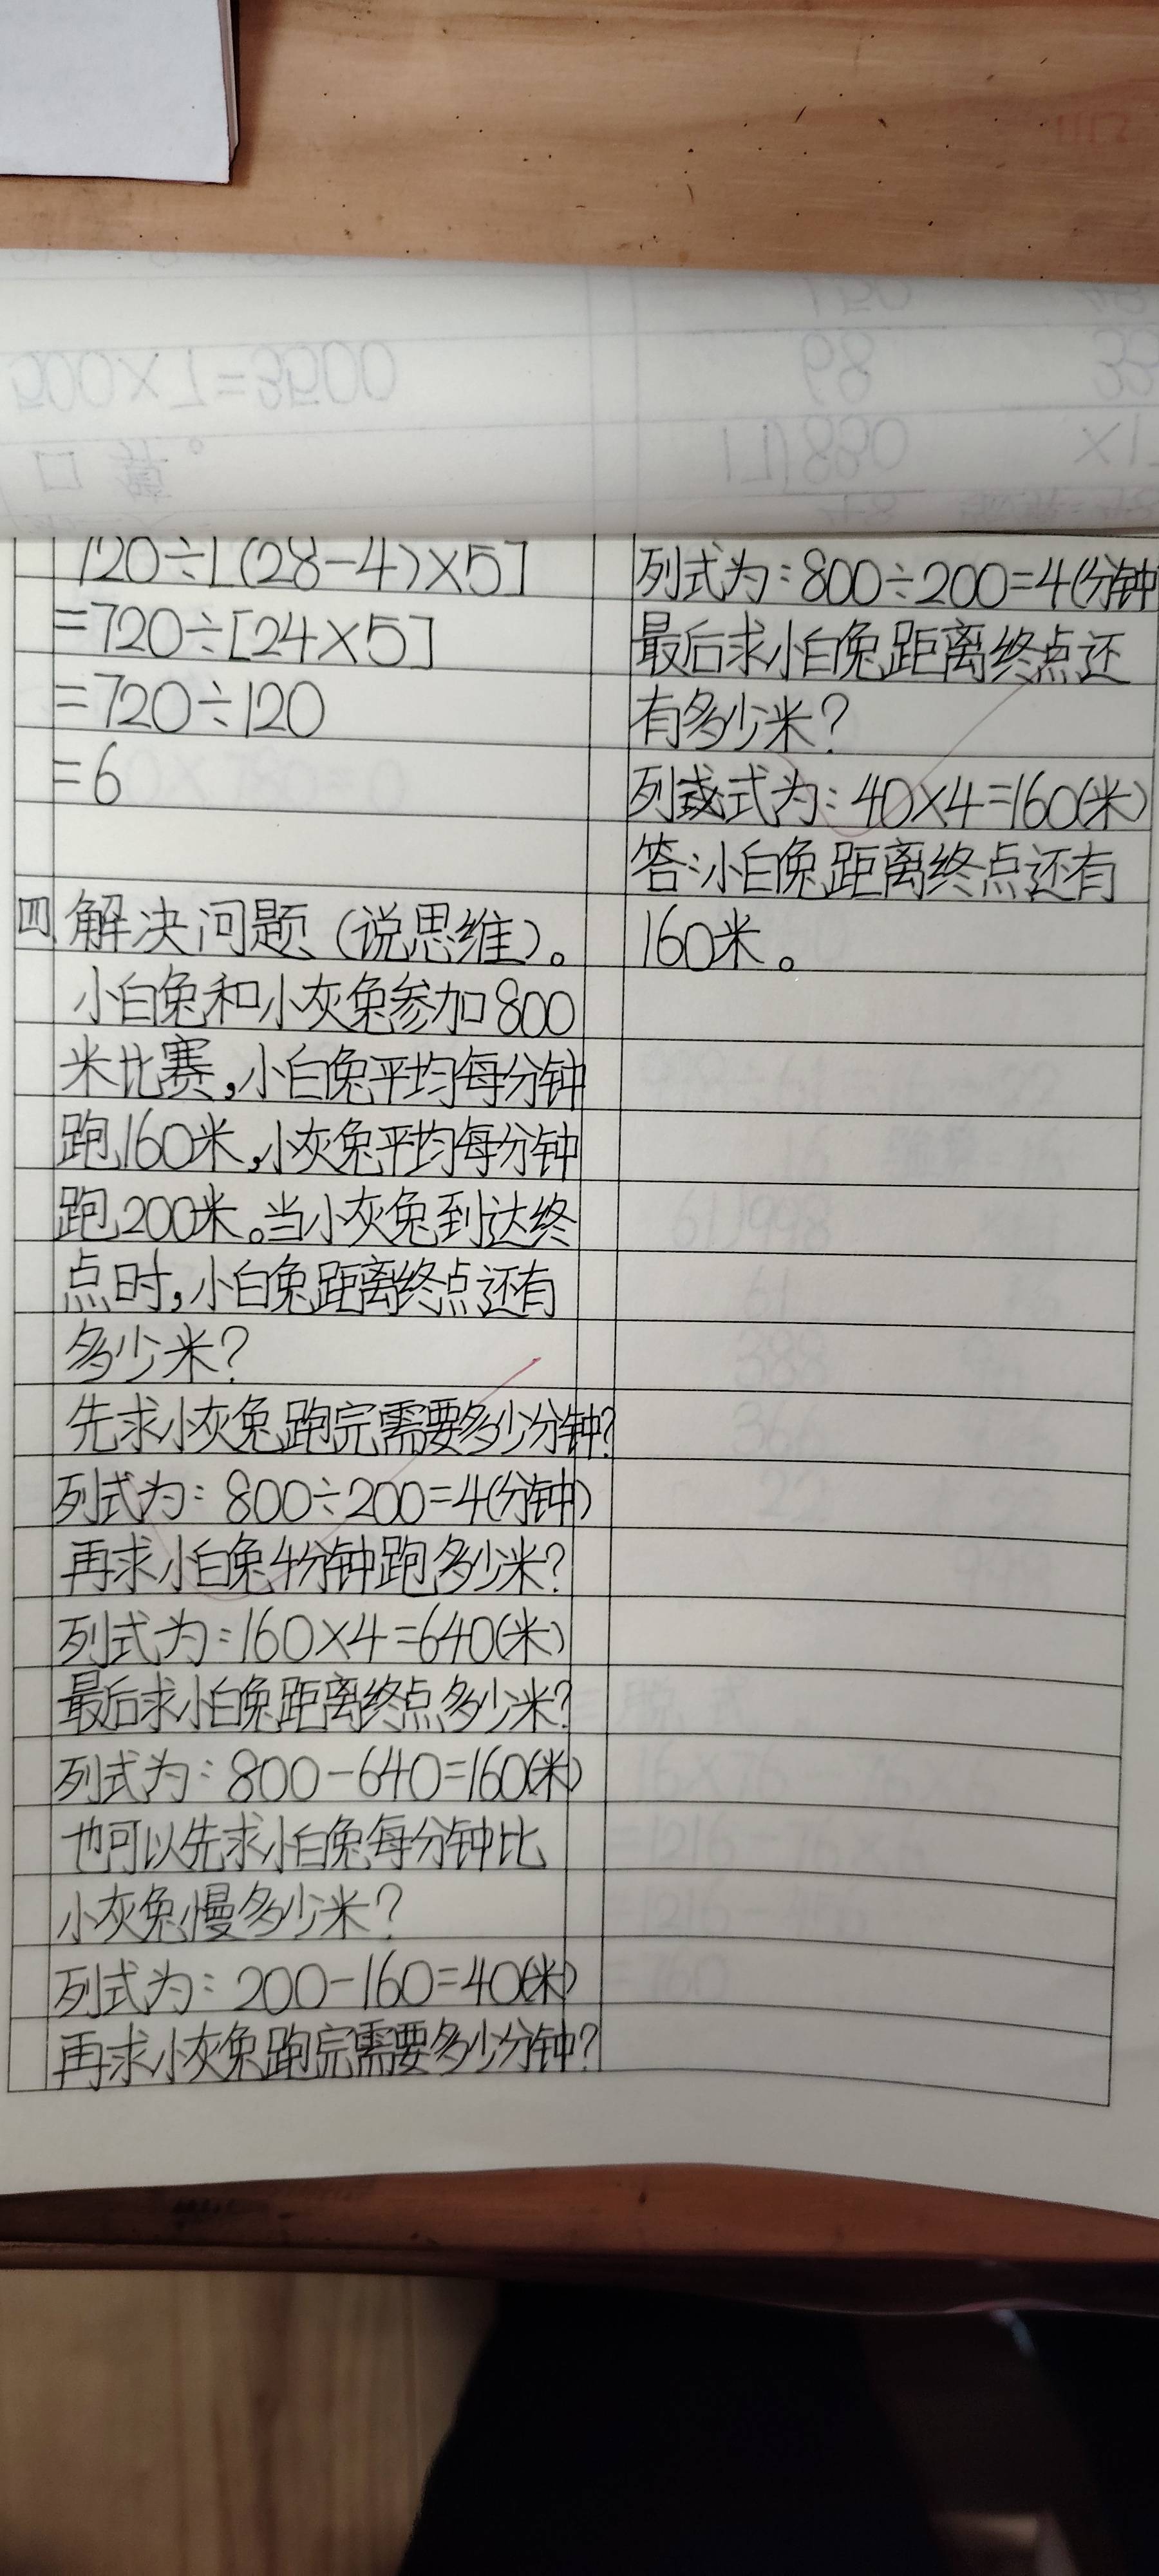 720÷[(28-4)×5]
=720÷[24×5]
=720÷120
=6
四.解决问题(说思维)。
小白兔和小灰兔参加800
米比赛,小白兔平均每分钟
跑160米,小灰兔平均每分钟
跑200米。当小灰兔到达终
点时,小白兔距离终点还有
多少米?
先求小灰兔跑完需要多少分钟?
列式为:800÷200=4(分钟)
再求小白兔4分钟跑多少米?
列式为:160×4=640(米)
最后求小白兔距离终点多少米?
列式为:800-640=160(米)
也可以先求小白兔每分钟比
小灰兔慢多少米?
列式为:200-160=40(米)
再求小灰兔跑完需要多少分钟?
列式为:800÷200=4(分钟
最后求小白兔距离终点还
有多少米?
列式为:40×4=160(米)
答:小白兔距离终点还有
160米。
500×7=3500
口算。